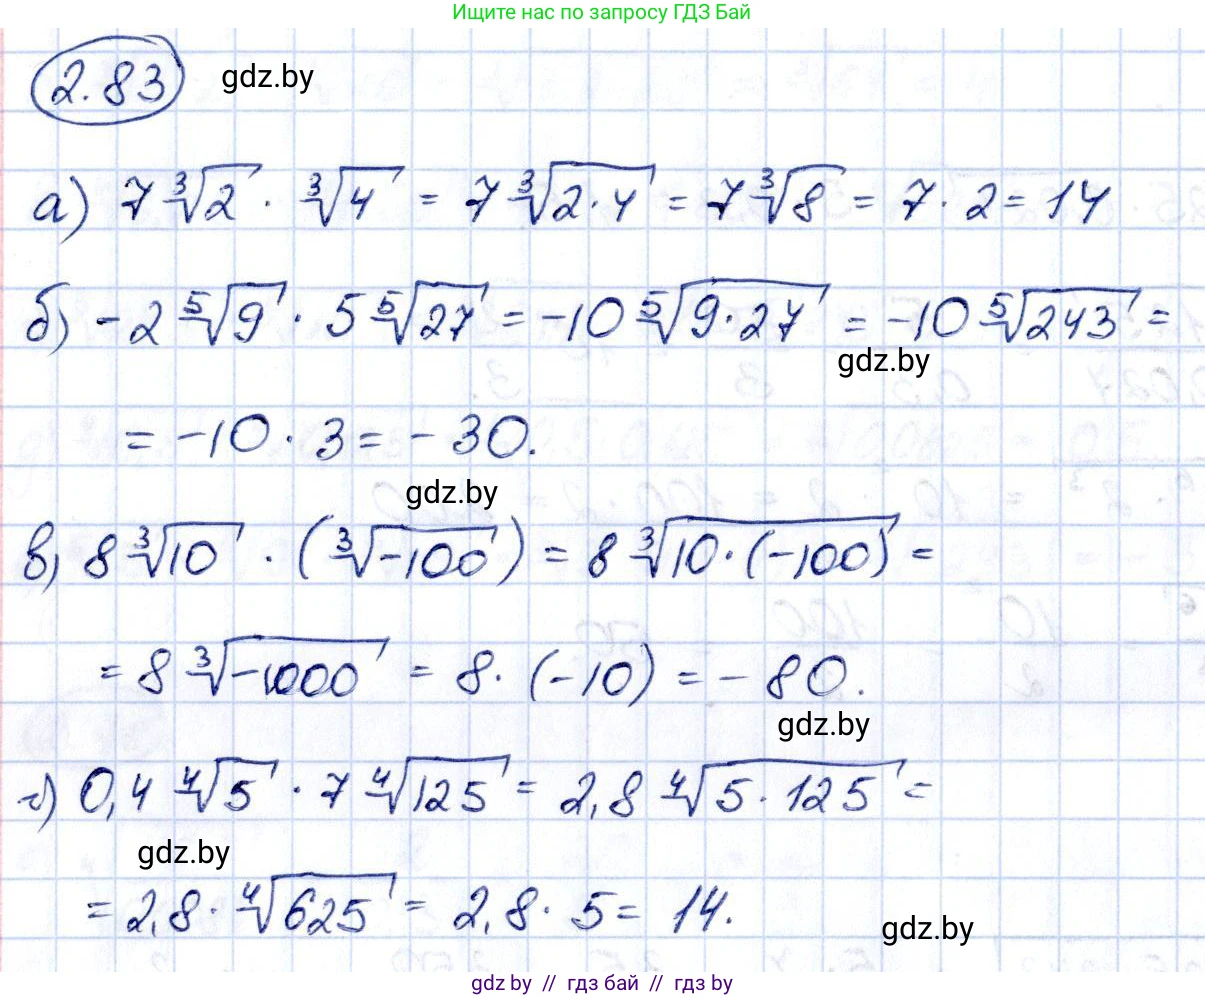 Ищите нас по запросу ГДЗ Бай
2.83 gdz.by
а) 7∛2 · ∛4 = 7∛(2·4) = 7∛8 = 7·2 = 14
б) -2⁵√9 · 5⁵√27 = -10⁵√(9·27) = -10⁵√243 =
gdz.by
= -10·3 = -30.
gdz.by
в) 8∛10 · (∛-100) = 8∛(10·(-100)) =
= 8∛-1000 = 8·(-10) = -80.
gdz.by
г) 0,4∜5 · 7∜125 = 2,8∜(5·125) =
gdz.by
= 2,8·∜625 = 2,8·5 = 14.
gdz.by
gdz by // гдз бай // гдз by